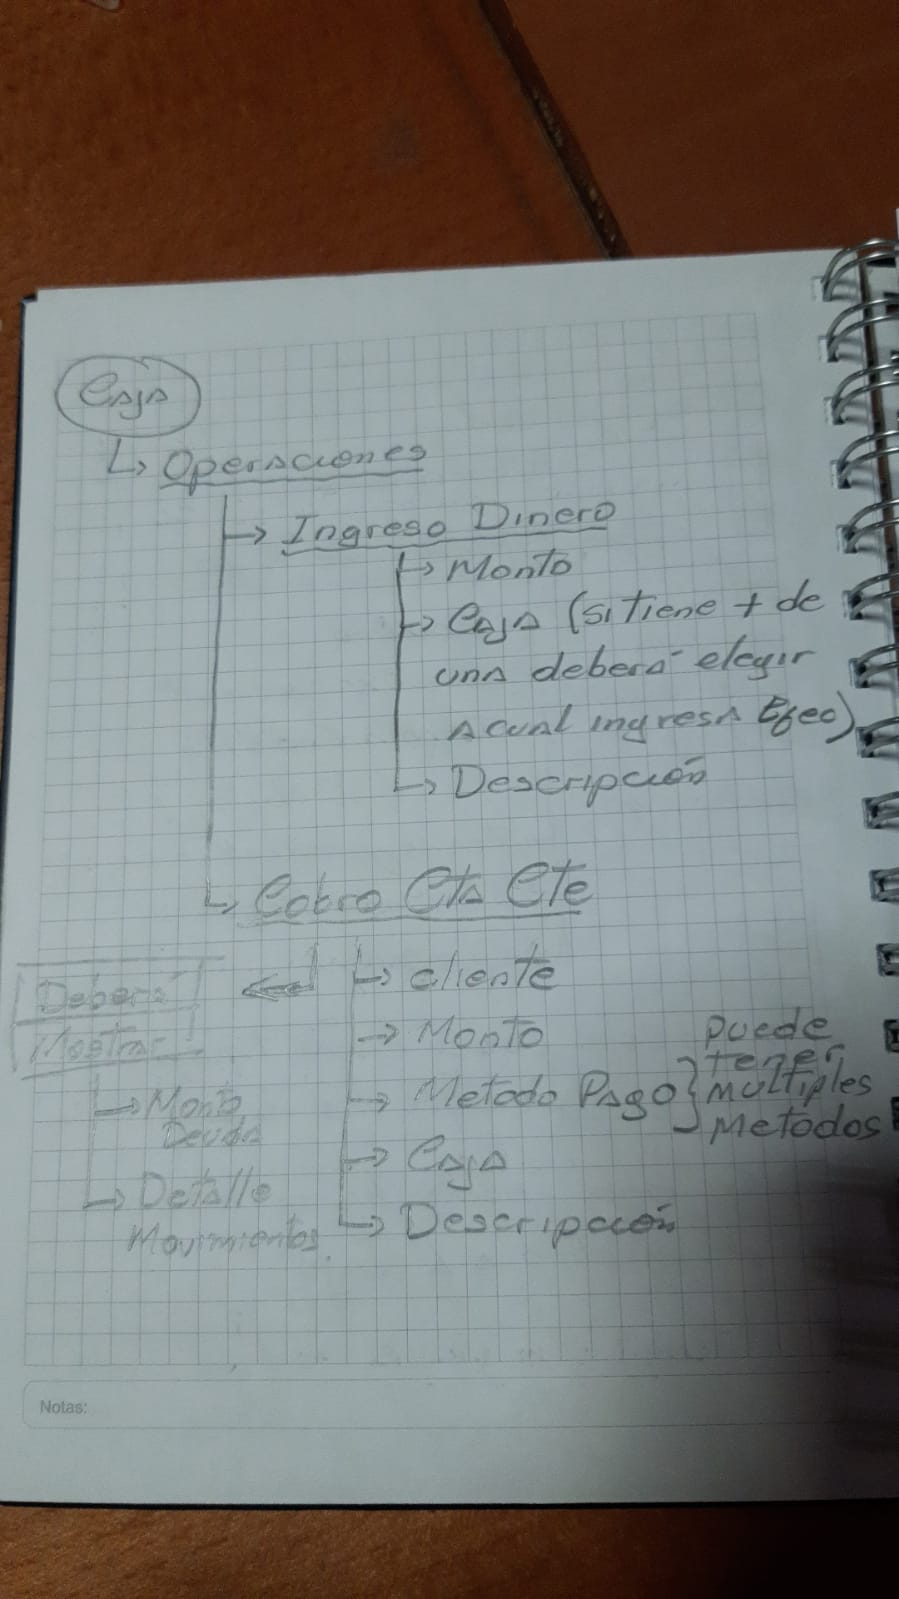 Caja
Operaciones
Ingreso Dinero
Monto
Caja (si tiene + de
una deberá elegir
a cual ingresa Efec)
Descripción
Cobro Cta Cte
Cliente
Monto
Metodo Pago } puede
tener
multiples
metodos
Caja
Descripción
Deberá
Mostrar
Monto
Deuda
Detalle
Movimientos.
Notas: